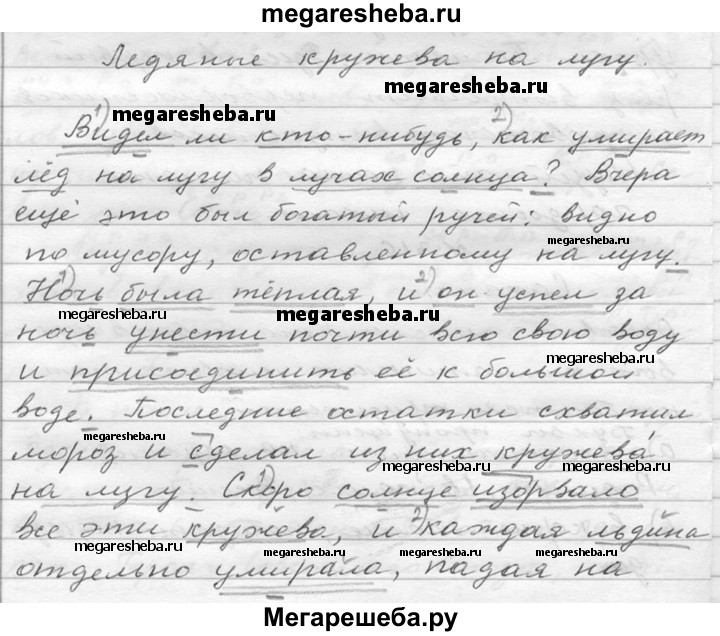 megaresheba.ru
Ледяные кружева на лугу.
megaresheba.ru
megaresheba.ru
1) 2)
Видел ли кто-нибудь, как умирает
лёд на лугу в лучах солнца? Вчера
ещё это был богатый ручей: видно
megaresheba.ru
по мусору, оставленному на лугу.
1) 2)
Ночь была тёплая, и он успел за
megaresheba.ru
ночь унести почти всю свою воду
megaresheba.ru
и присоединить её к большой
воде. Последние остатки схватил
megaresheba.ru megaresheba.ru
мороз и сделал из них кружева
на лугу. Скоро солнце изорвало
1) 2)
все эти кружева, и каждая льдина
megaresheba.ru megaresheba.ru megaresheba.ru
отдельно умирала, падая на
Мегарешеба.ру